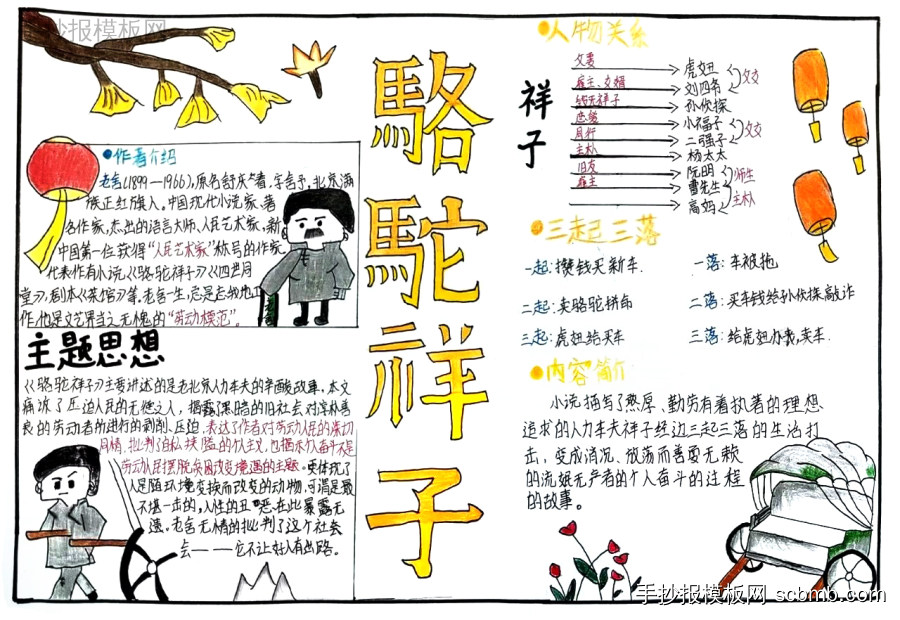 抄报模板网
骆駝祥子
作者介绍
老舍(1899—1966),原名舒庆春,字舍予,北京满
族正红旗人。中国现代小说家、著
名作家,杰出的语言大师、人民艺术家,新
中国第一位获得“人民艺术家”称号的作家
代表作有小说《骆驼祥子》《四世同
堂》,剧本《茶馆》等,老舍一生,总是忘我地工
作,他是文艺界当之无愧的“劳动模范”。
主题思想
《骆驼祥子》主要讲述的是老北京人力车夫的辛酸故事。本文
痛诉了压迫人民的无德之人,揭露了黑暗的旧社会对淳朴善
良的劳动者所进行的剥削、压迫,表达了作者对劳动人民的深切
同情,批判了自私狭隘的个人主义,也揭示个人奋斗不是
劳动人民摆脱贫困改变境遇的主题。更体现了
人是随环境变换而改变的动物,可谓是最
不堪一击的,人性的丑恶在此暴露无
遗。老舍无情的批判了这个社会
——它不让好人有出路。
人物关系
祥子
夫妻
雇主、女婿
同行
主仆
旧友
雇主
虎妞
刘四爷
父女
孙侦探
小福子
二强子
父女
杨太太
阮明
曹先生
师生
高妈
主仆
三起三落
一起:攒钱买新车.
一落:车被抢
二起:卖骆驼拼命
二落:买车钱给孙侦探敲诈
三起:虎妞给买车
三落:给虎妞办丧,卖车.
内容简介
小说描写了憨厚、勤劳有着执著的理想
追求的人力车夫祥子经过三起三落的生活打
击,变成消沉、放荡而善耍无赖
的流氓无产者的个人奋斗的过程
的故事。
手抄报模板网 scbmb.com